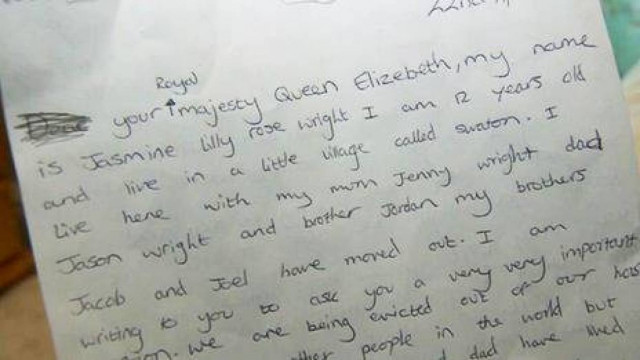 Royal
your majesty Queen Elizebeth, my name
is Jasmine lilly rose wright I am 12 years old
and live in a little village called swaton. I
live here with my mum Jenny wright dad
Jason wright and brother Jordan my brothers
Jacob and Joel have moved out. I am
writing to you to ask you a very very important
we are being evicted out of our
people in the world but
dad have lived